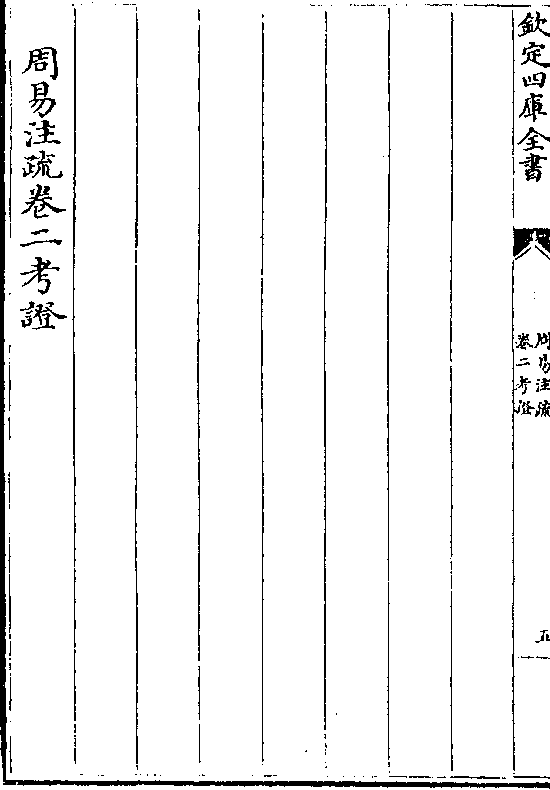 欽定四庫全書
周易注疏
卷二考證
五
周易注疏卷二考證